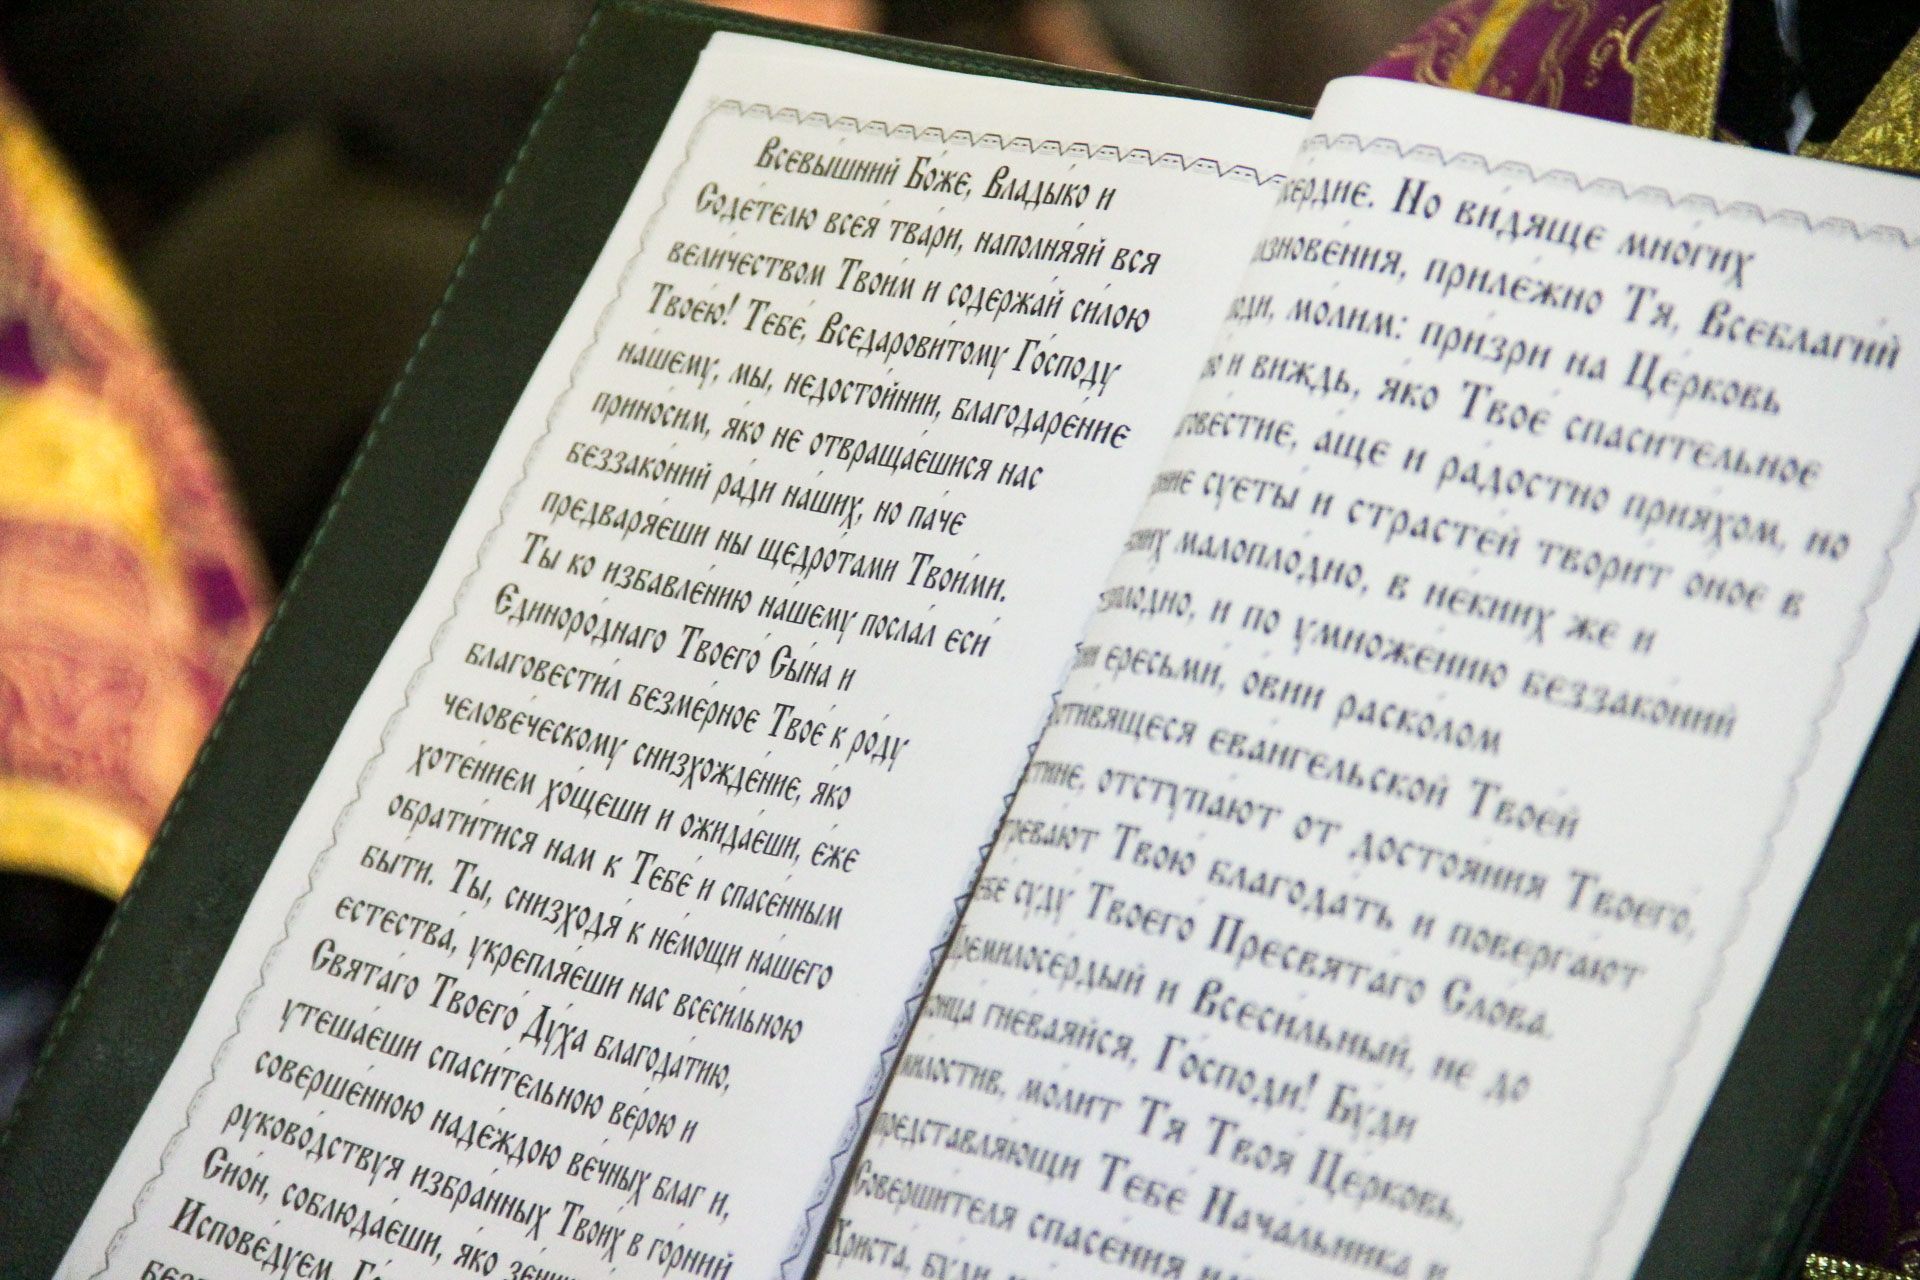 Всевы́шний Бо́же, Влады́ко и
Соде́телю всея́ тва́ри, наполня́яй вся
вели́чеством Твои́м и содержа́й си́лою
Твое́ю! Тебе́, Вседарови́тому Го́споду
на́шему, мы, недосто́йнии, благодаре́ние
прино́сим, я́ко не отвраща́ешися нас
беззако́ний ра́ди на́ших, но па́че
предваря́еши ны щедро́тами Твои́ми.
Ты ко избавле́нию на́шему посла́л еси́
Единоро́днаго Твоего́ Сы́на и
благовести́л безме́рное Твое́ к ро́ду
челове́ческому снизхожде́ние, я́ко
хоте́нием хо́щеши и ожида́еши, е́же
обрати́тися нам к Тебе́ и спасе́нным
бы́ти. Ты, снизходя́ к не́мощи на́шего
естества́, укрепля́еши нас всеси́льною
Свята́го Твоего́ Ду́ха благода́тию,
утеша́еши спаси́тельною ве́рою и
соверше́нною наде́ждою ве́чных благ и,
руково́дствуя избра́нных Твои́х в го́рний
Сио́н, соблюда́еши, я́ко
Испове́дуем,
се́рдие. Но ви́дяще мно́гих
приле́жно Тя, Всеблаги́й
мо́лим: при́зри на Це́рковь
и виждь, я́ко Твое́ спаси́тельное
а́ще и ра́достно прия́хом, но
суеты́ и страсте́й твори́т оное в
малопло́дно, в не́киих же и
и по умноже́нию беззако́ний
ересьми́, о́вии раско́лом
ева́нгельской Твое́й
отступа́ют от достоя́ния Твоего́,
Твою́ благода́ть и поверга́ют
суду́ Твоего́ Пресвята́го Сло́ва.
и Всеси́льный, не до
гне́ваяйся, Го́споди! Бу́ди
мо́лит Тя Твоя́ Це́рковь,
представля́ющи Тебе́ Нача́льника и
Соверши́теля спасе́ния
Христа́, бу́ди